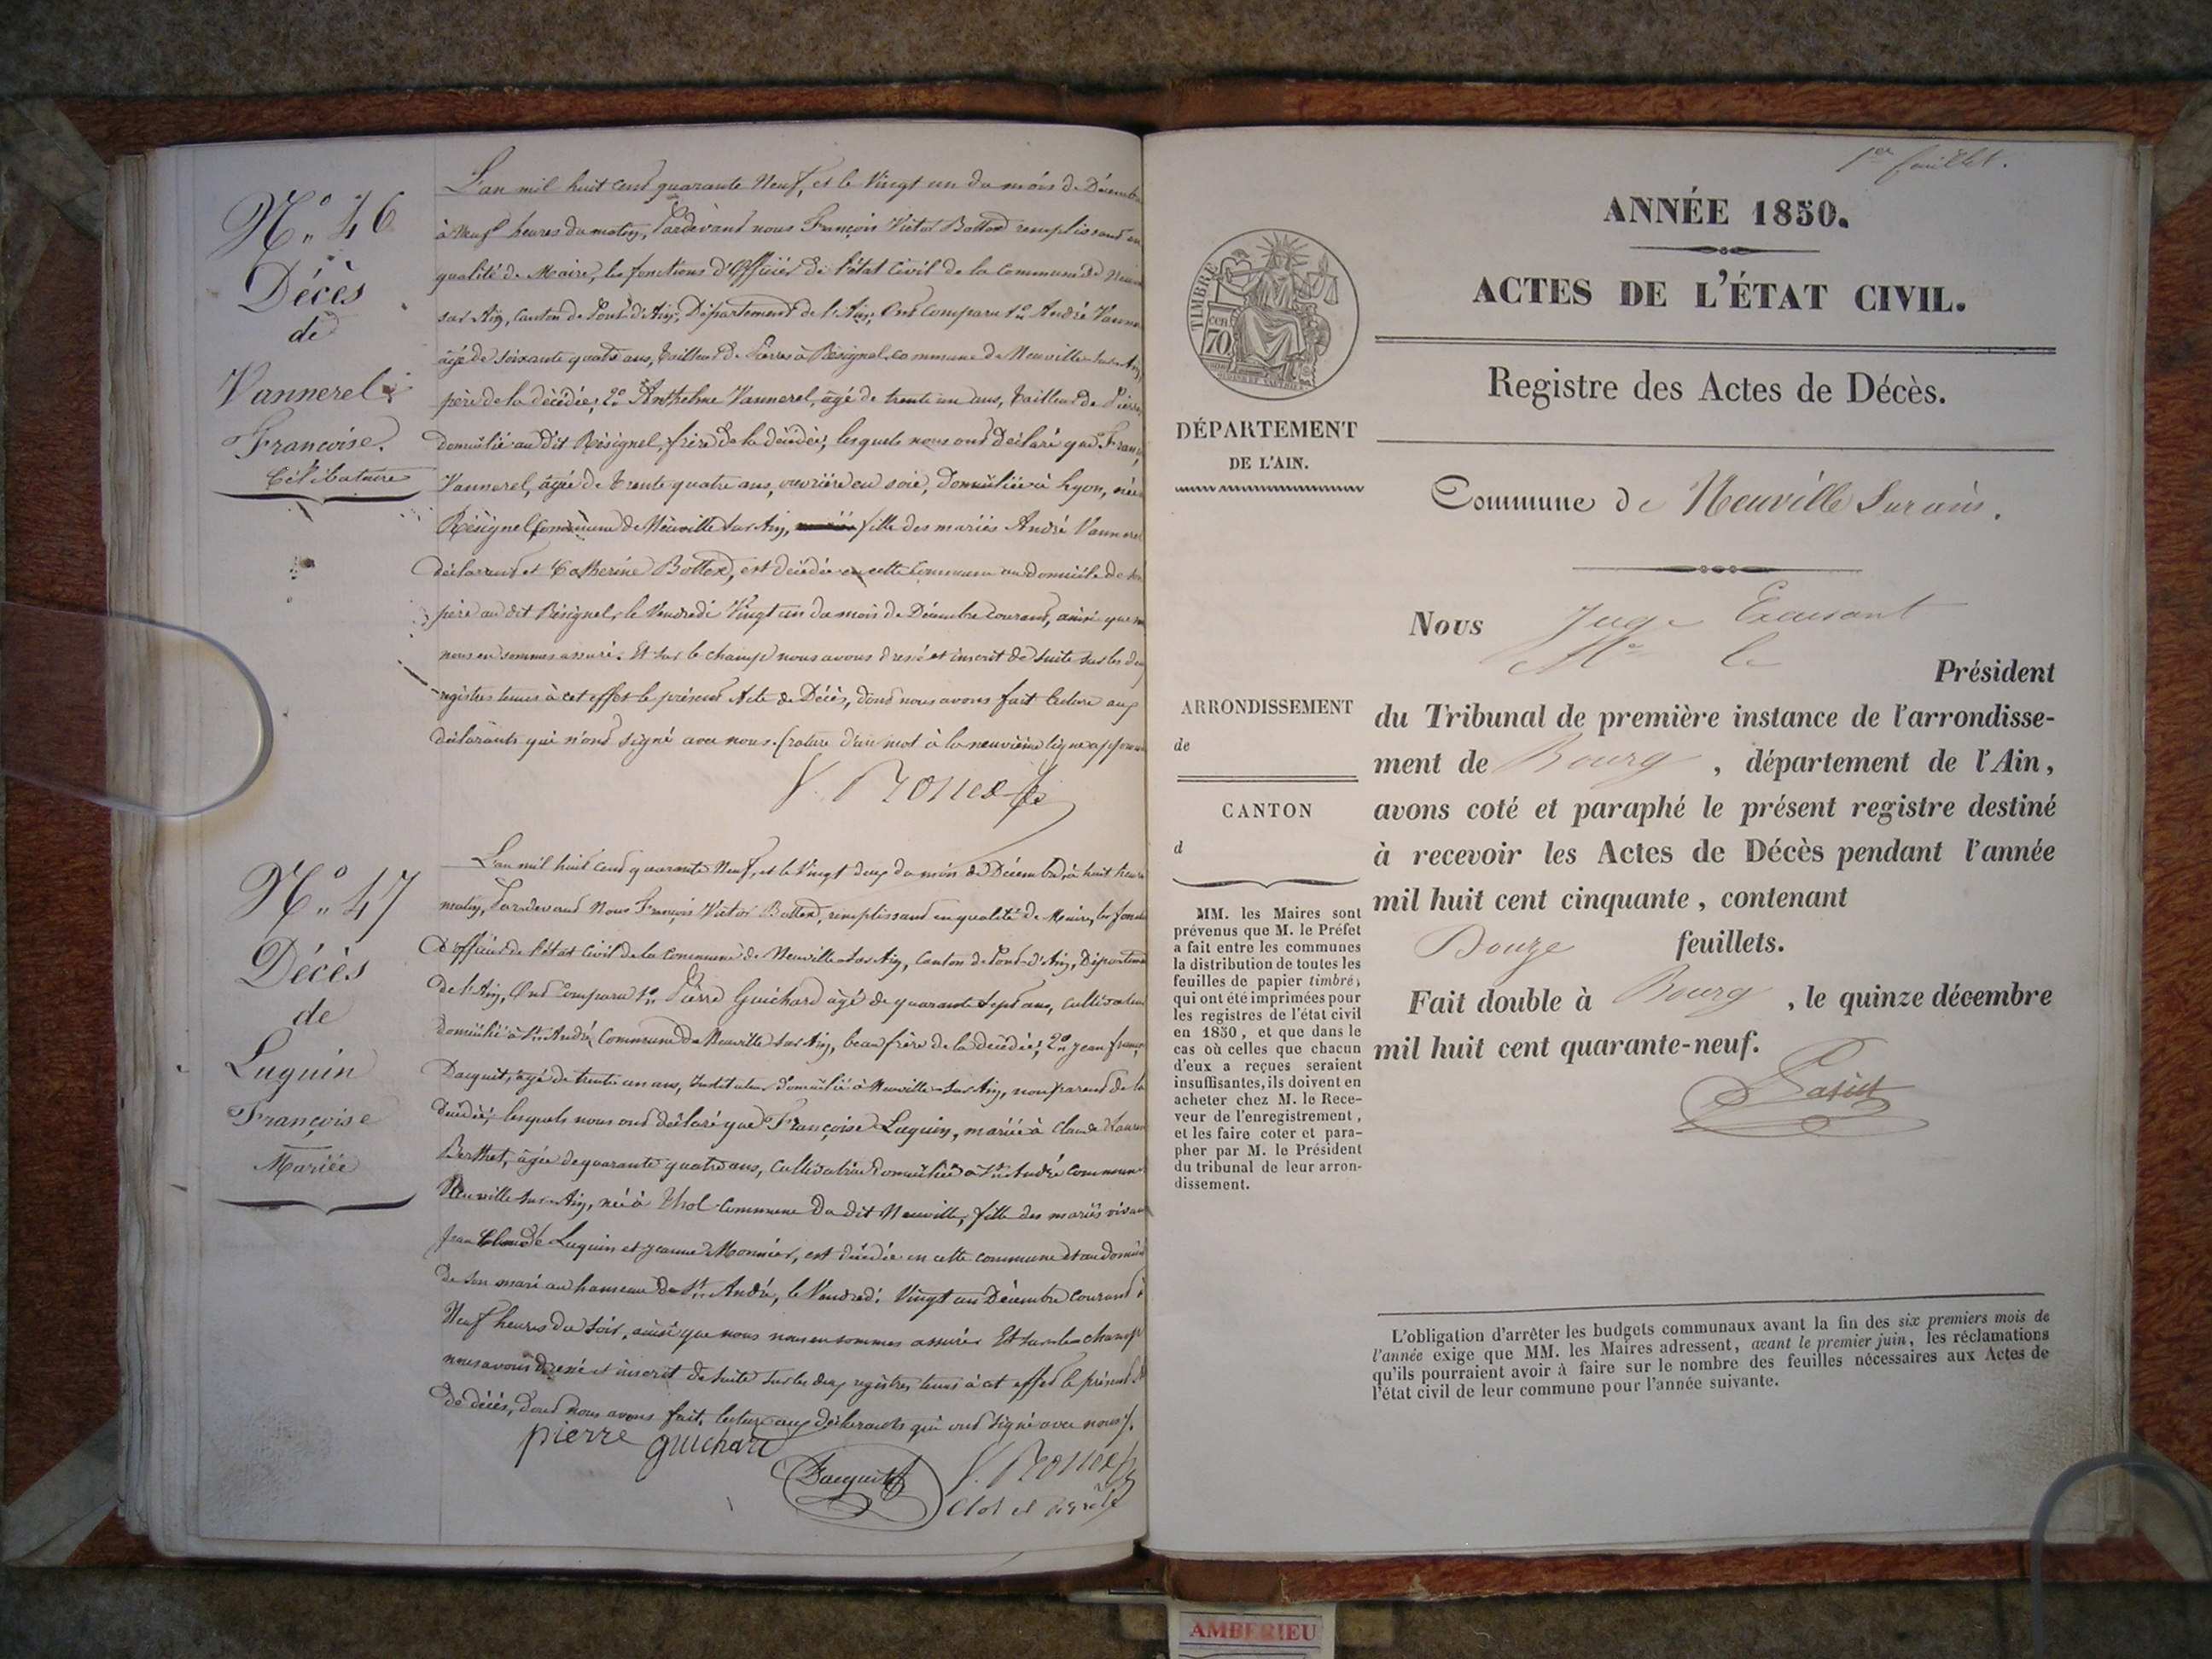 N.º 46
Décès
de
Vannerel
Françoise
Célibataire
L'an mil huit cent quarante Neuf, et le Vingt un du mois de Décembre
à Neuf heures du matin, Pardevant nous François Victor Bottex remplissant en
qualité de Maire, les fonctions d'Officier de l'état Civil de la Commune de
sur Ain, Canton de Pont d'Ain, Département de l'Ain, Ont Comparu 1º André
âgé de soixante quatre ans, tailleur de Pierres à Résignel commune de Neuville sur Ain
père de la décédée; 2º Anthelme Vannerel, âgé de trente un ans, tailleur de Pierre,
domicilié au dit Résignel, frère de la décédée; lesquels nous ont déclaré que
Vannerel, âgée de trente quatre ans, ouvrière en soie, domiciliée à Lyon, née
Résignel Commune de Neuville sur Ain, fille des mariés André Vannerel
déclarant et Catherine Bottex, est décédée en cette Commune au domicile de
père au dit Résignel, le Vendredi Vingt un du mois de Décembre courant, ainsi que
nous en sommes assuré. Et sur le champ nous avons dressé et inscrit de suite sur les
registres tenus à cet effet le présent Acte de Décès, dont nous avons fait lecture aux
déclarants qui n'ont signé avec nous. (rature d'un mot à la neuvième ligne
V. Bottex
N.º 47
Décès
de
Luguin
Françoise
Mariée
L'an mil huit cent quarante Neuf, et le Vingt deux du mois de Décembre, à huit heures
matin, Pardevant Nous François Victor Bottex, remplissant en qualité de Maire, les
d'officier de l'état Civil de la Commune de Neuville sur Ain, Canton de Pont-d'Ain, Département
de l'Ain, Ont Comparu 1º Pierre Guichard âgé de quarante sept ans, cultivateur
domicilié à St. André, Commune de Neuville sur Ain, beau frère de la décédée; 2º Jean
Dacquit, âgé de trente un ans, Instituteur domicilié à Neuville-sur-Ain, non parent de la
décédée; lesquels nous ont déclaré que Françoise Luguin, mariée à Claude
Berthet, âgée de quarante quatre ans, Cultivatrice domiciliée à St. André commune
Neuville sur Ain, née à Thol Commune du dit Neuville, fille des mariés
Jean Claude Luguin et Jeanne Monnier, est décédée en cette commune et au
de son mari au hameau de St. André, le Vendredi Vingt un Décembre Courant à
Neuf heures du soir, ainsi que nous nous en sommes assurés Et sur le champ
nous avons dressé et inscrit de suite sur les deux registres tenus à cet effet le présent
de décès, dont nous avons fait, lecture aux déclarants qui ont signé avec nous.
pierre guichard
Dacquit V. Bottex
Clos et
1er feuillet.
ANNÉE 1850.
ACTES DE L'ÉTAT CIVIL.
Registre des Actes de Décès.
TIMBRE
cen
70
DÉPARTEMENT
DE L'AIN.
ARRONDISSEMENT
de
CANTON
d
MM. les Maires sont
prévenus que M. le Préfet
a fait entre les communes
la distribution de toutes les
feuilles de papier timbré,
qui ont été imprimées pour
les registres de l'état civil
en 1850, et que dans le
cas où celles que chacun
d'eux a reçues seraient
insuffisantes, ils doivent en
acheter chez M. le Rece-
veur de l'enregistrement,
et les faire coter et para-
pher par M. le Président
du tribunal de leur arron-
dissement.
Commune de Neuville Sur ain.
Nous Juge
le
Président
du Tribunal de première instance de l'arrondisse-
ment de Bourg, département de l'Ain,
avons coté et paraphé le présent registre destiné
à recevoir les Actes de Décès pendant l'année
mil huit cent cinquante, contenant
Douze feuillets.
Fait double à Bourg, le quinze décembre
mil huit cent quarante-neuf.
L'obligation d'arrêter les budgets communaux avant la fin des six premiers mois de
l'année exige que MM. les Maires adressent, avant le premier juin, les réclamations
qu'ils pourraient avoir à faire sur le nombre des feuilles nécessaires aux Actes de
l'état civil de leur commune pour l'année suivante.
AMBERIEU